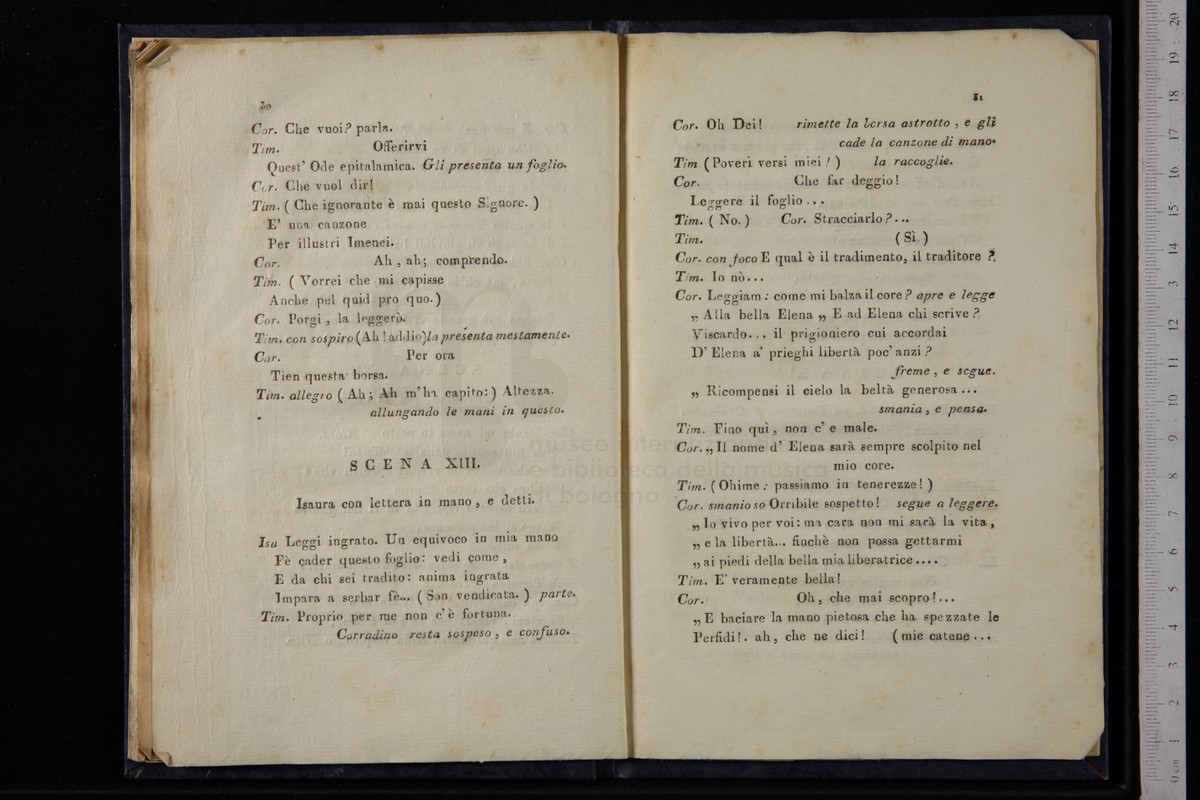 50
Cor. Che vuoi? parla.
Tim. Offerirvi
Quest' Ode epitalamica. Gli presenta un foglio.
Cor. Che vuol dir!
Tim. ( Che ignorante è mai questo Signore. )
E' una canzone
Per illustri Imenei.
Cor. Ah , ah; comprendo.
Tim. ( Vorrei che mi capisse
Anche pel quid pro quo. )
Cor. Porgi , la leggerò.
Tim. con sospiro (Ah ! addio) la presenta mestamente.
Cor. Per ora
Tien questa borsa.
Tim. allegro ( Ah ; Ah m'ha capito: ) Altezza.
allungando le mani in questo.
SCENA XIII.
Isaura con lettera in mano , e detti.
Isa Leggi ingrato. Un equivoco in mia mano
Fè cader questo foglio: vedi come ,
E da chi sei tradito: anima ingrata
Impara a serbar fè... ( Son vendicata. ) parte.
Tim. Proprio per me non c'è fortuna.
Corradino resta sospeso , e confuso.
51
Cor. Oh Dei! rimette la borsa astratto , e gli
cade la canzone di mano.
Tim ( Poveri versi miei ! ) la raccoglie.
Cor. Che far deggio!
Leggere il foglio ...
Tim. ( No. ) Cor. Stracciarlo ? ...
Tim. ( Sì. )
Cor. con foco E qual è il tradimento, il traditore ?
Tim. Io nò...
Cor. Leggiam : come mi balza il core ? apre e legge
„ Alla bella Elena „ E ad Elena chi scrive ?
Viscardo... il prigioniero cui accordai
D' Elena a' prieghi libertà poc' anzi ?
freme , e segue.
„ Ricompensi il cielo la beltà generosa ...
smania , e pensa.
Tim. Fino quì , non c' e male.
Cor. „ Il nome d' Elena sarà sempre scolpito nel
mio core.
Tim. ( Ohime : passiamo in tenerezze! )
Cor. smanioso Orribile sospetto ! segue a leggere.
„ Io vivo per voi : ma cara non mi sarà la vita ,
„ e la libertà... finchè non possa gettarmi
„ ai piedi della bella mia liberatrice ....
Tim. E' veramente bella!
Cor. Oh, che mai scopro!...
„ E baciare la mano pietosa che ha spezzate le
Perfidi!. ah, che ne dici! ( mie catene ...
museo internazionale
e biblioteca della musica
di bologna